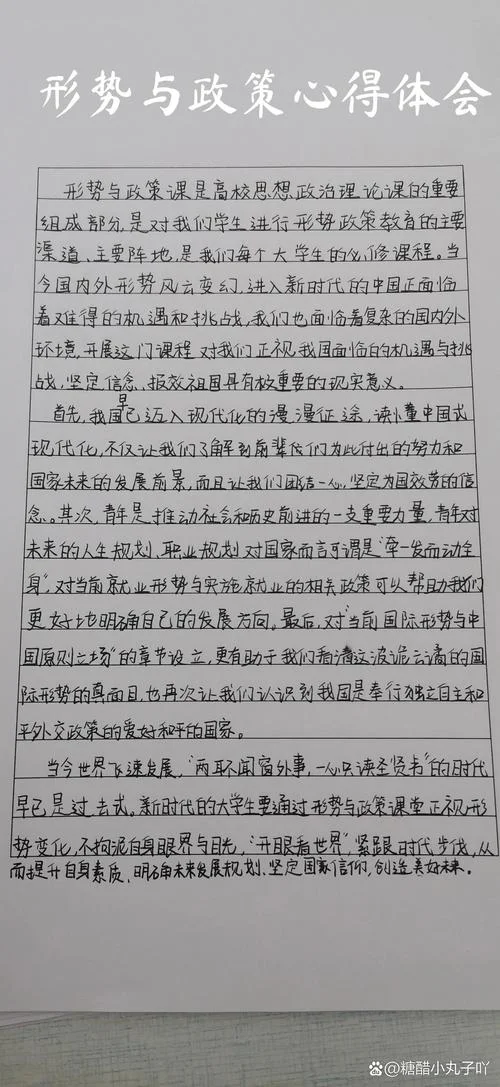 形势与政策心得体会
形势与政策课是高校思想政治理论课的重要
组成部分,是对我们学生进行形势政策教育的主要
渠道、主要阵地,是我们每个大学生的必修课程。当
今国内外形势风云变幻,进入新时代的中国正面临
着难得的机遇和挑战,我们也面临着复杂的国内外
环境,开展这门课程对我们正视我国面临的机遇与挑
战,坚定信念、报效祖国具有极重要的现实意义。
首先,我国早已迈入现代化的漫漫征途,读懂中国式
现代化,不仅让我们了解到前辈传们为此付出的努力和
国家未来的发展前景,而且让我们团结一心,坚定为国效劳的信
念。其次,青年是推动社会和历史前进的一支重要力量,青年对
未来的人生规划、职业规划对国家而言可谓是“牵一发而动全
身”,对当前就业形势与实施就业的相关政策可以帮助我们
更好地明确自己的发展方向。最后,对“当前国际形势与中
国原则立场”的章节设立,更有助于我们看清这波诡云谲的国
际形势的真面目,也再次让我们认识到我国是奉行独立自主和
平外交政策的爱好和平的国家。
当今世界飞速发展,“两耳不闻窗外事,一心只读圣贤书”的时代
早已是过去式。新时代的大学生要通过形势与政策课堂正视形
势变化,不拘泥自身眼界与目光,“开眼看世界”,紧跟时代步伐,从
而提升自身素质、明确未来发展规划、坚定国家信仰,创造美好未来。
@糖醋小丸子吖